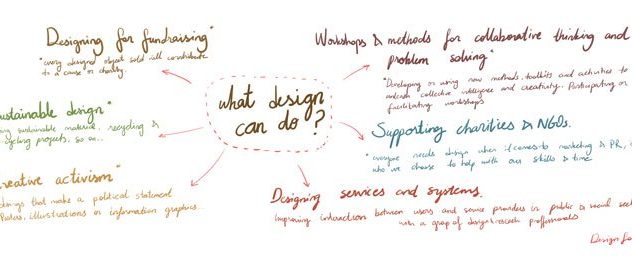 Designing for fundraising"
"every designed object sold will contribute
to a cause or charity.
ustainable design"
ing sustainable material, recycling &
cycling projects, so on..
reative activism"
designs that make a political statement
Posters, illustrations or information graphics.
what design
can do?
Workshops & methods for collaborative thinking and
problem solving"
"Developing or using new methods, toolkits and activities to
collective intelligence and creativity. Participating or
facilitating workshops
Supporting charities & NGOs.
"everyone needs design when it comes to marketing & PR,
who we choose to help with our skills & time
Designing services and systems.
Improving interaction between users and service providers in public & social sect
with a group of design & research professionals
Design fo